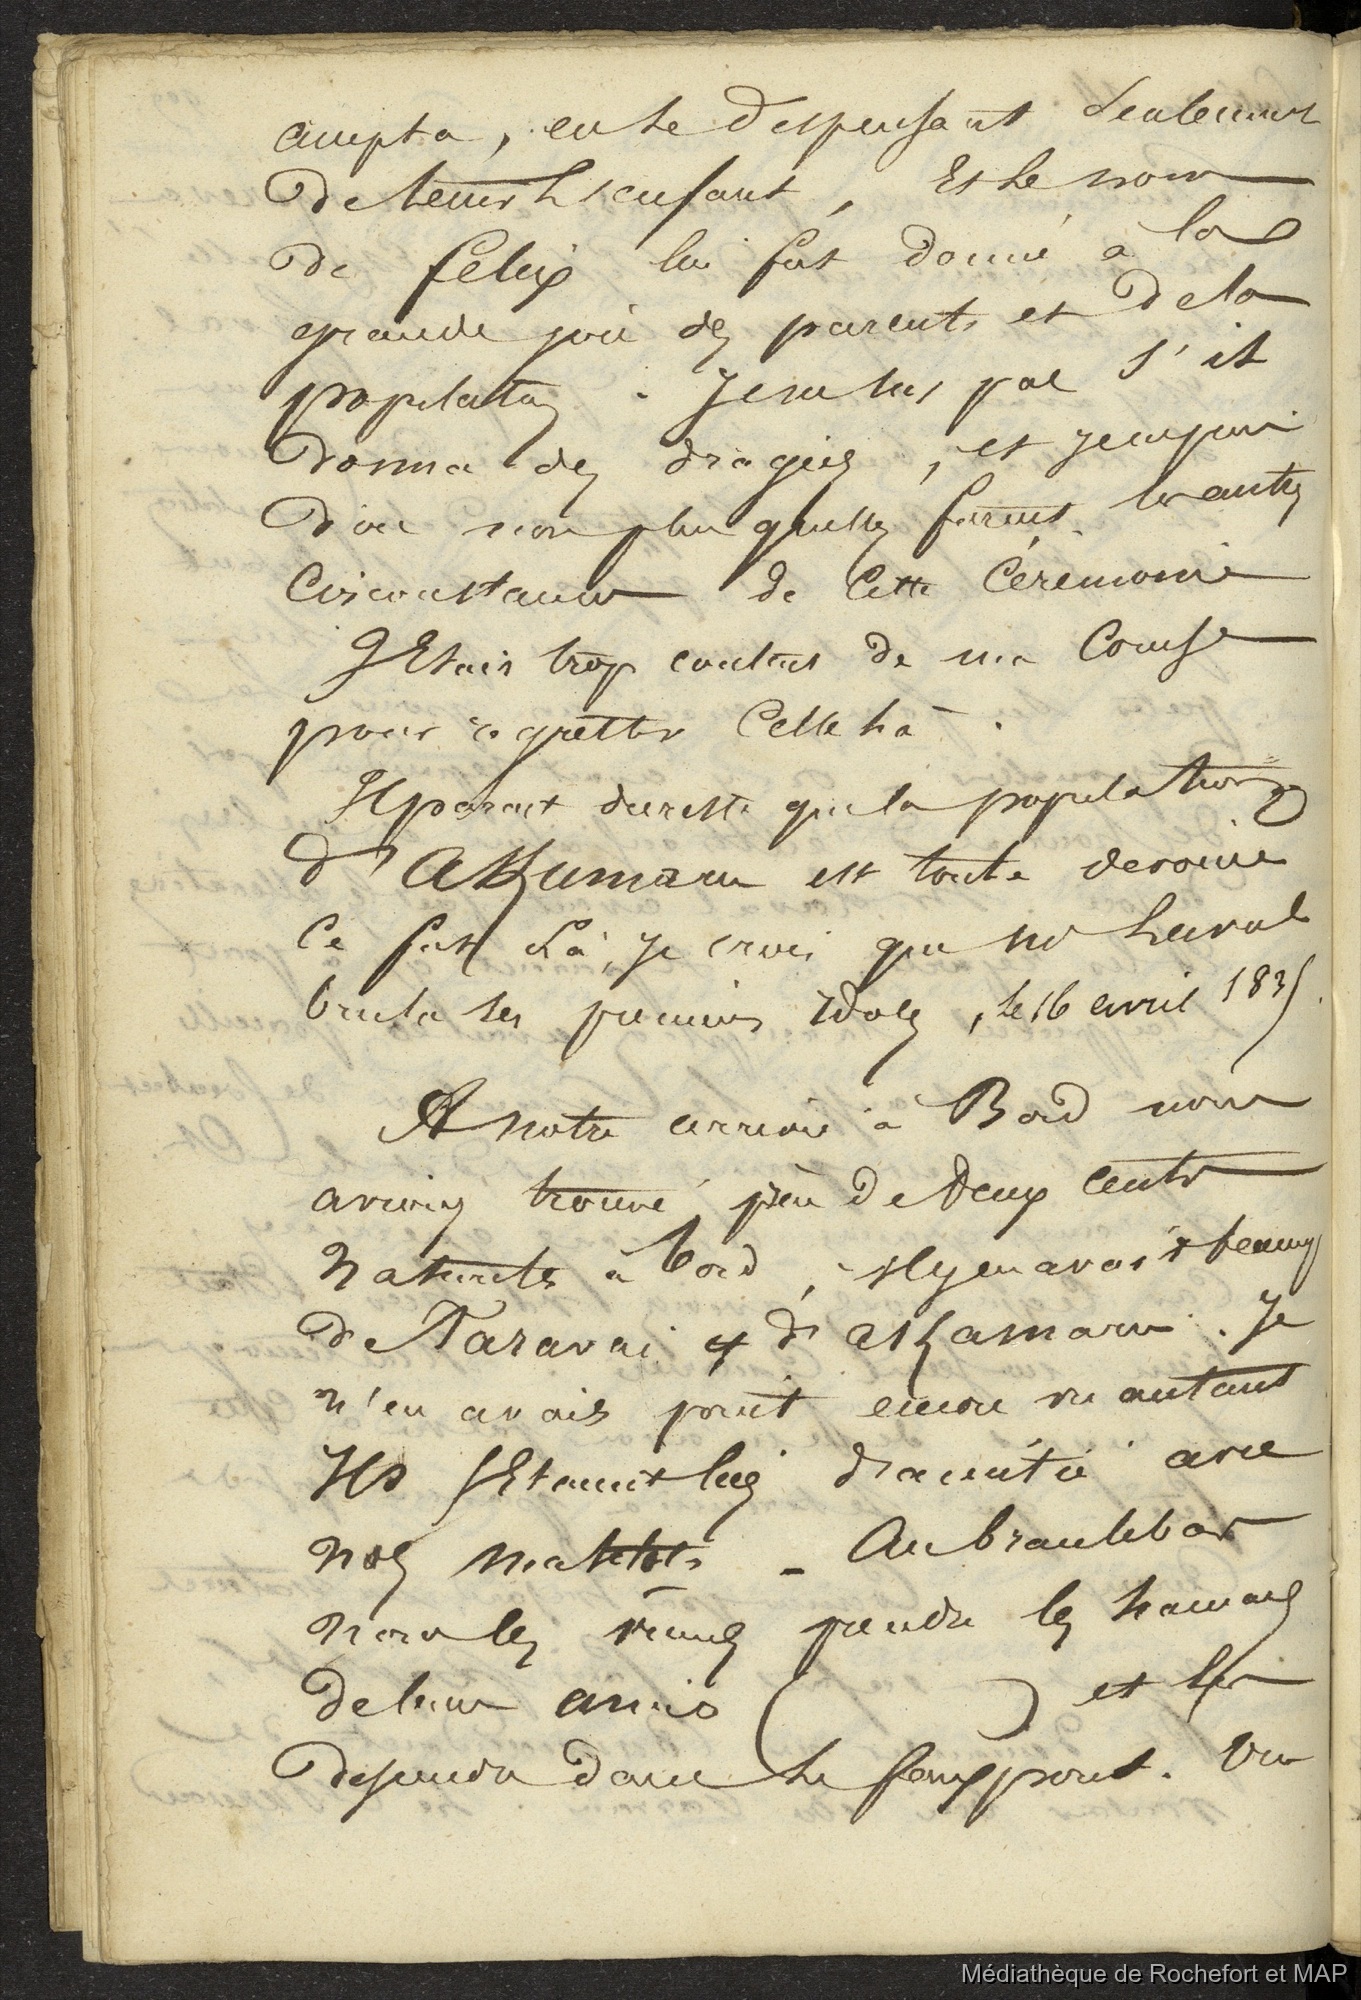 accepta, en le dispensant seulement
de tenir l'enfant, et le nom
de felix lui fut donné à la
grande joie des parents et de la
population. Je ne sus pas s'il
donna des dragées, et je ne puis
dire non plus quelles furent les autres
circonstances de cette Cérémonie
J'Etais trop content de ma Course
pour regretter Celle là.
Il parait du reste que la population
d'AKamaru est toute devouée
Ce fut Là, je crois que Mr Laval
brula les premieres idoles, le 16 avril 1835.
A notre arrivée à Bord nous
avions trouvé près de deux cents
naturels à bord, il y en avait beaucoup
de Taravai & d'aKamaru. Je
n'en avais point encore vu autant
Ils s'Etaient liés d'amitié avec
nos matelots - Au branlebas
nous les vimes prendre les hamacs
de leurs amis ( ) et les
descendre dans le faux pont. Un
Médiathèque de Rochefort et MAP